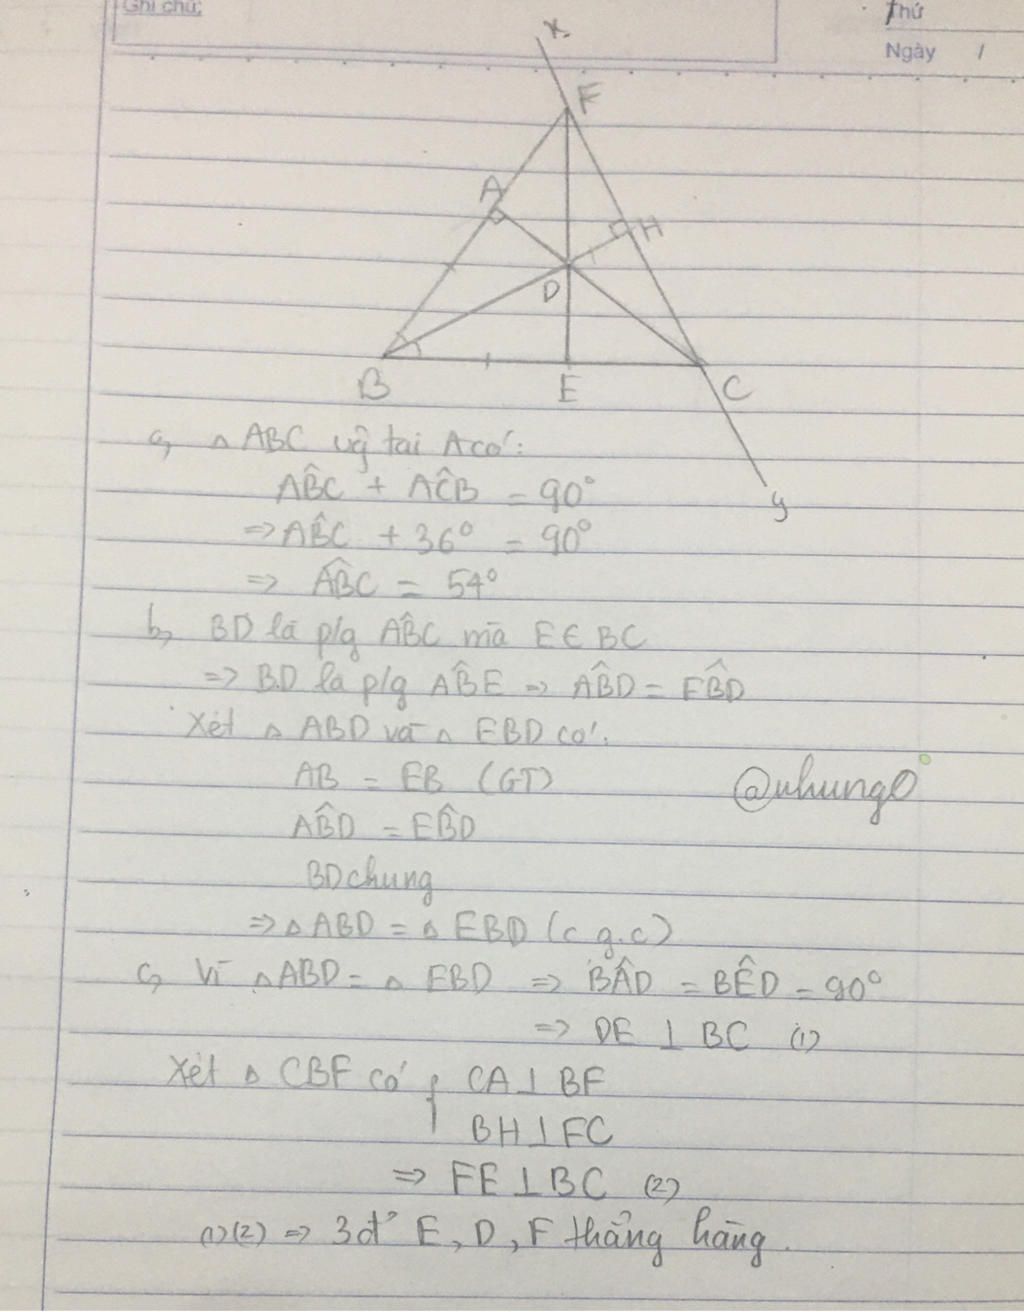 Ghi chú:
Thứ
Ngày /
x
F
A
H
D
B
E
C
y
a, △ ABC vg tại A có:
AB̂C + AĈB = 90°
=> AB̂C + 36° = 90°
=> AB̂C = 54°
b, BD là p/g AB̂C mà E ∈ BC
=> BD là p/g AB̂E => AB̂D = EB̂D
Xét △ ABD và △ EBD có:
AB = EB (GT)
@nhung0
AB̂D = EB̂D
BD chung
=> △ ABD = △ EBD (c g.c)
c, Vì △ ABD = △ EBD => BÂD = BÊD = 90°
=> DE ⊥ BC (1)
Xét △ CBF có { CA ⊥ BF
BH ⊥ FC
=> FE ⊥ BC (2)
(1)(2) => 3đ' E, D, F thẳng hàng.